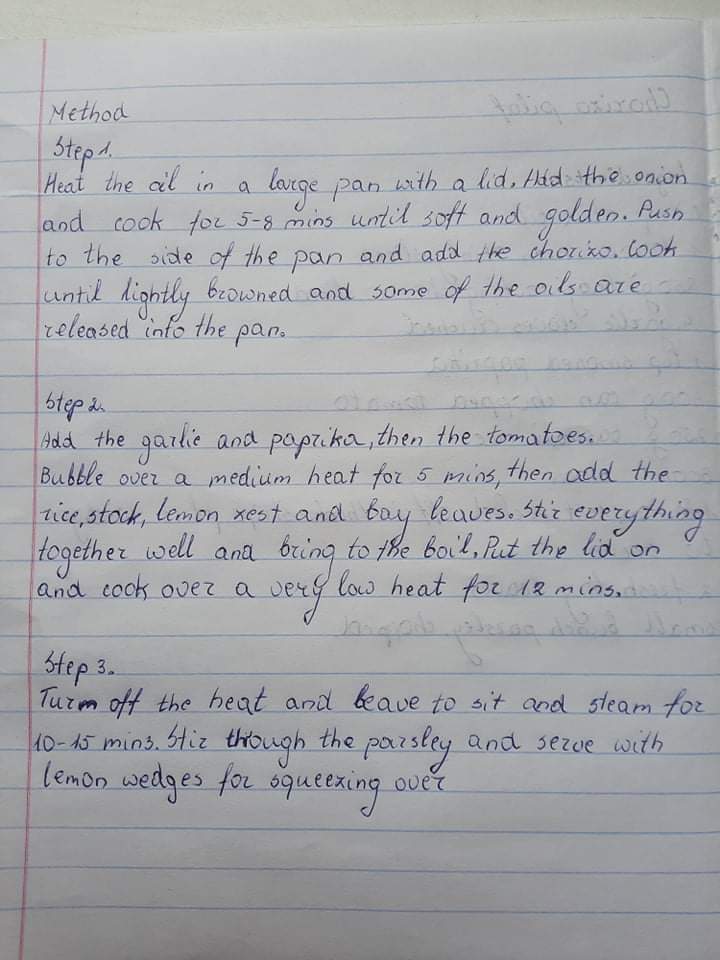 Method
Step 1.
Heat the oil in a large pan with a lid. Add the onion
and cook for 5-8 mins until soft and golden. Push
to the side of the pan and add the chorizo. Cook
until lightly browned and some of the oils are
released into the pan.
Step 2.
Add the garlic and paprika, then the tomatoes.
Bubble over a medium heat for 5 mins, then add the
rice, stock, lemon zest and bay leaves. Stir everything
together well and bring to the boil. Put the lid on
and cook over a very low heat for 12 mins.
Step 3.
Turn off the heat and leave to sit and steam for
10-15 mins. Stir through the parsley and serve with
lemon wedges for squeezing over